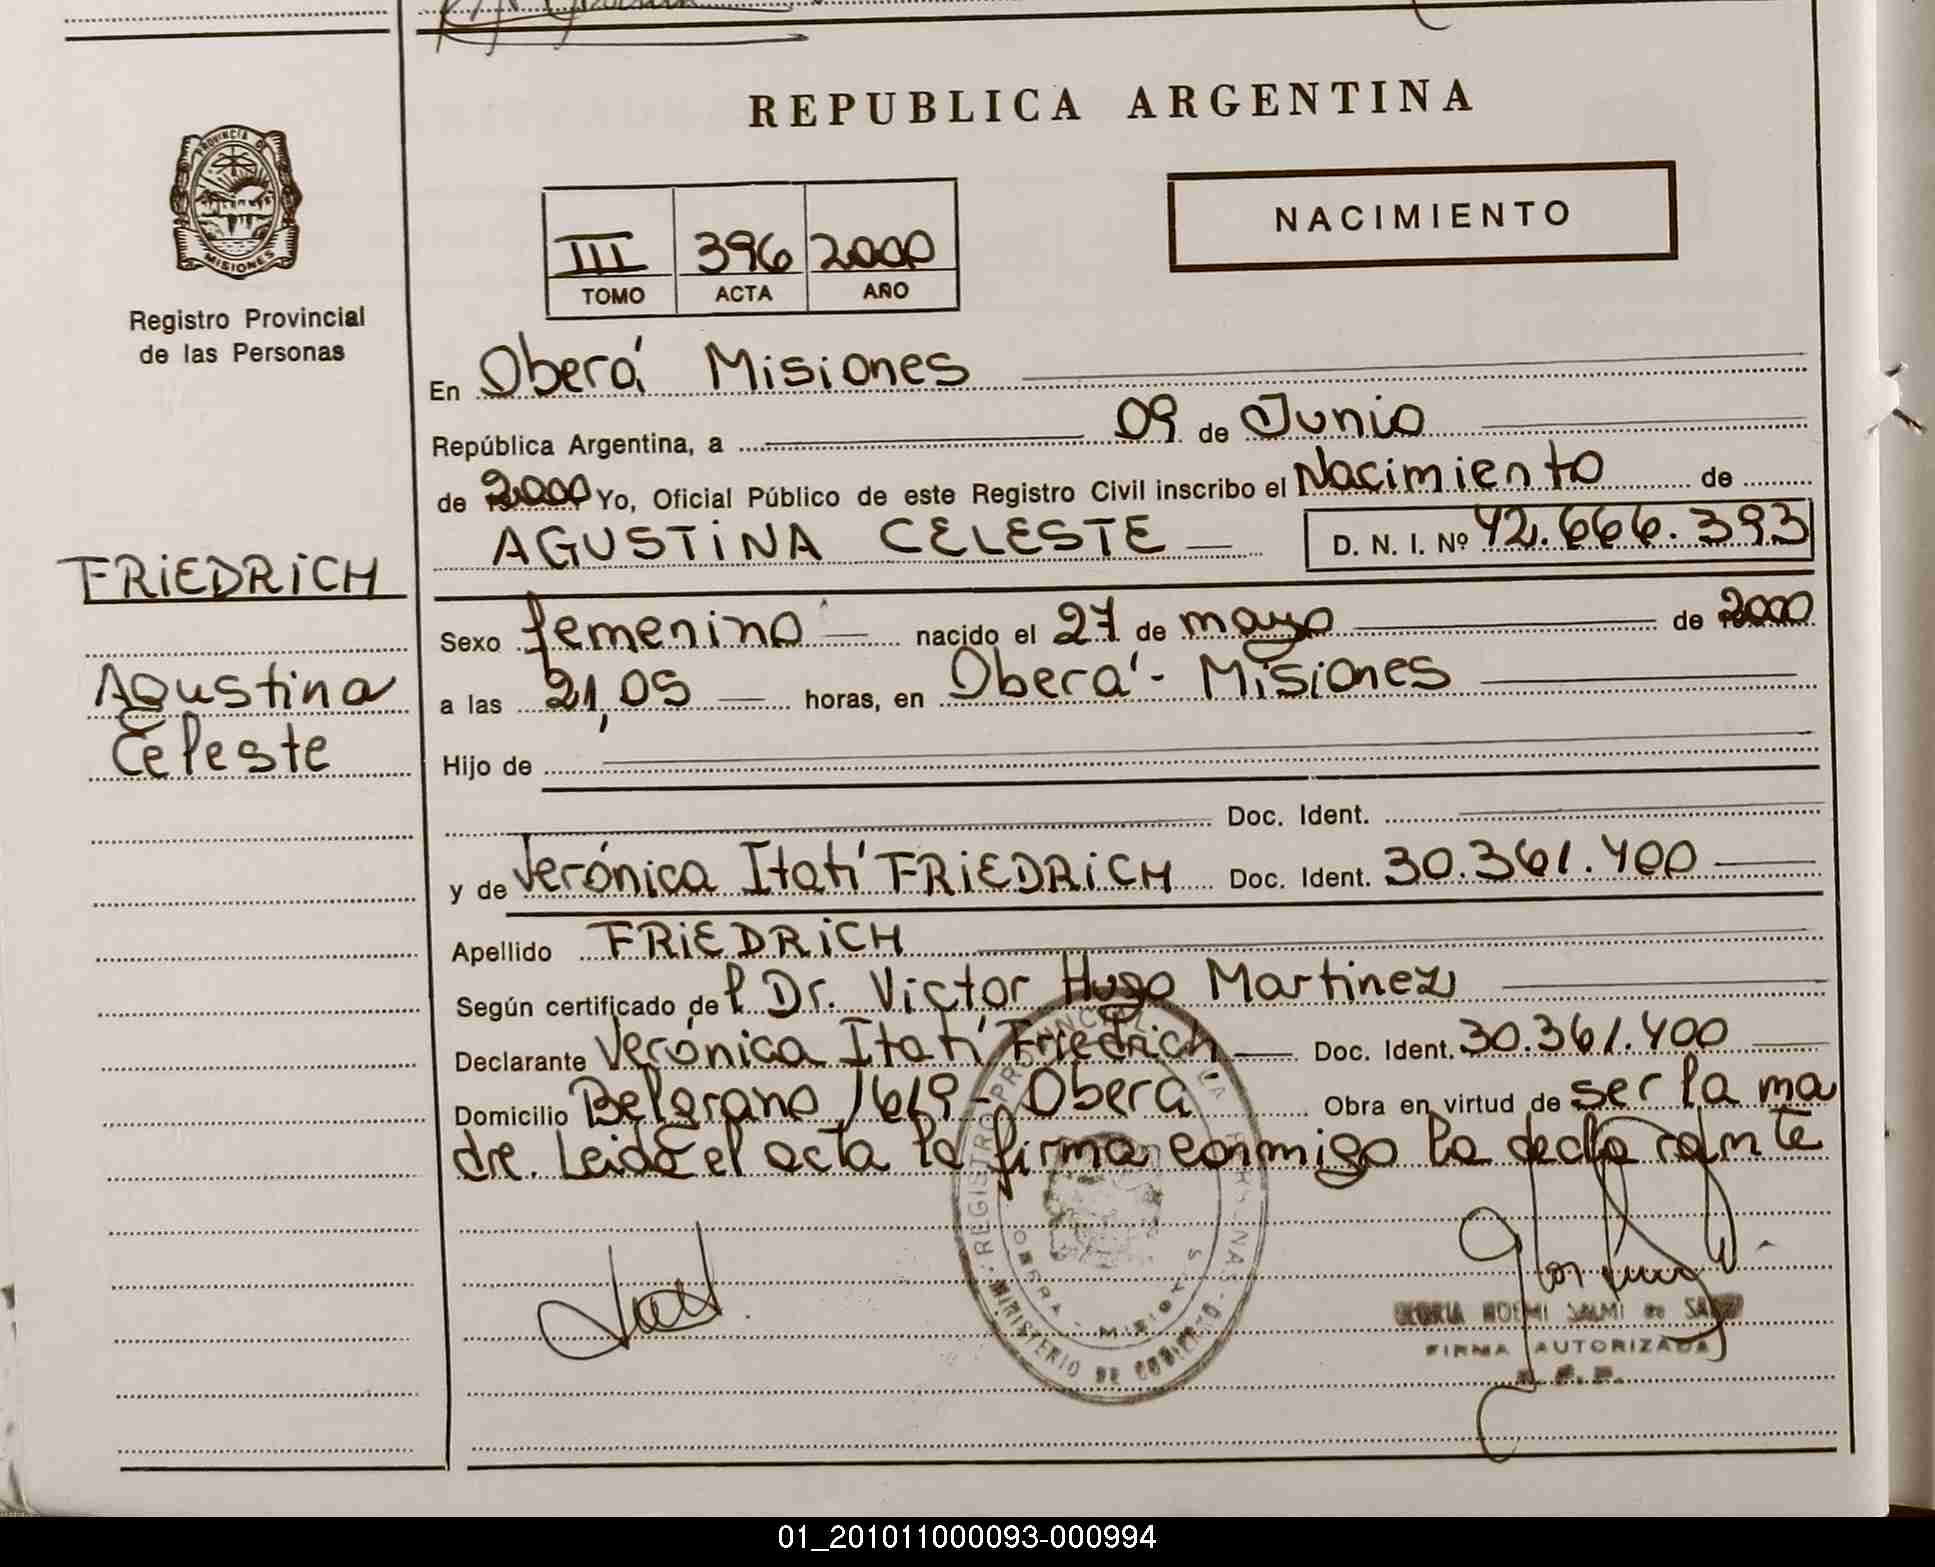 REPUBLICA ARGENTINA
PROVINCIA DE
MISIONES
Registro Provincial
de las Personas
NACIMIENTO
III 396 2000
TOMO ACTA AÑO
En Oberá Misiones
República Argentina, a 09 de Junio
de 2000 Yo, Oficial Público de este Registro Civil inscribo el Nacimiento de
AGUSTINA CELESTE D. N. I. Nº 42.666.393
FRIEDRICH
Agustina
Celeste
Sexo femenino nacido el 27 de mayo de 2000
a las 21,05 horas, en Oberá - Misiones
Hijo de
Doc. Ident.
y de Verónica Itatí FRIEDRICH Doc. Ident. 30.361.400
Apellido FRIEDRICH
Según certificado del Dr. Victor Hugo Martinez
Declarante Verónica Itatí Friedrich Doc. Ident. 30.361.400
Domicilio Belgrano 1619 - Oberá Obra en virtud de ser la ma
dre. Leida el acta la firma conmigo la declarante
REGISTRO PROVINCIAL DE LAS PERSONAS
MINISTERIO DE GOBIERNO
OBERA - MISIONES
GLORIA NOEMI SALMI de
FIRMA AUTORIZADA
R. P. P.
01_201011000093-000994